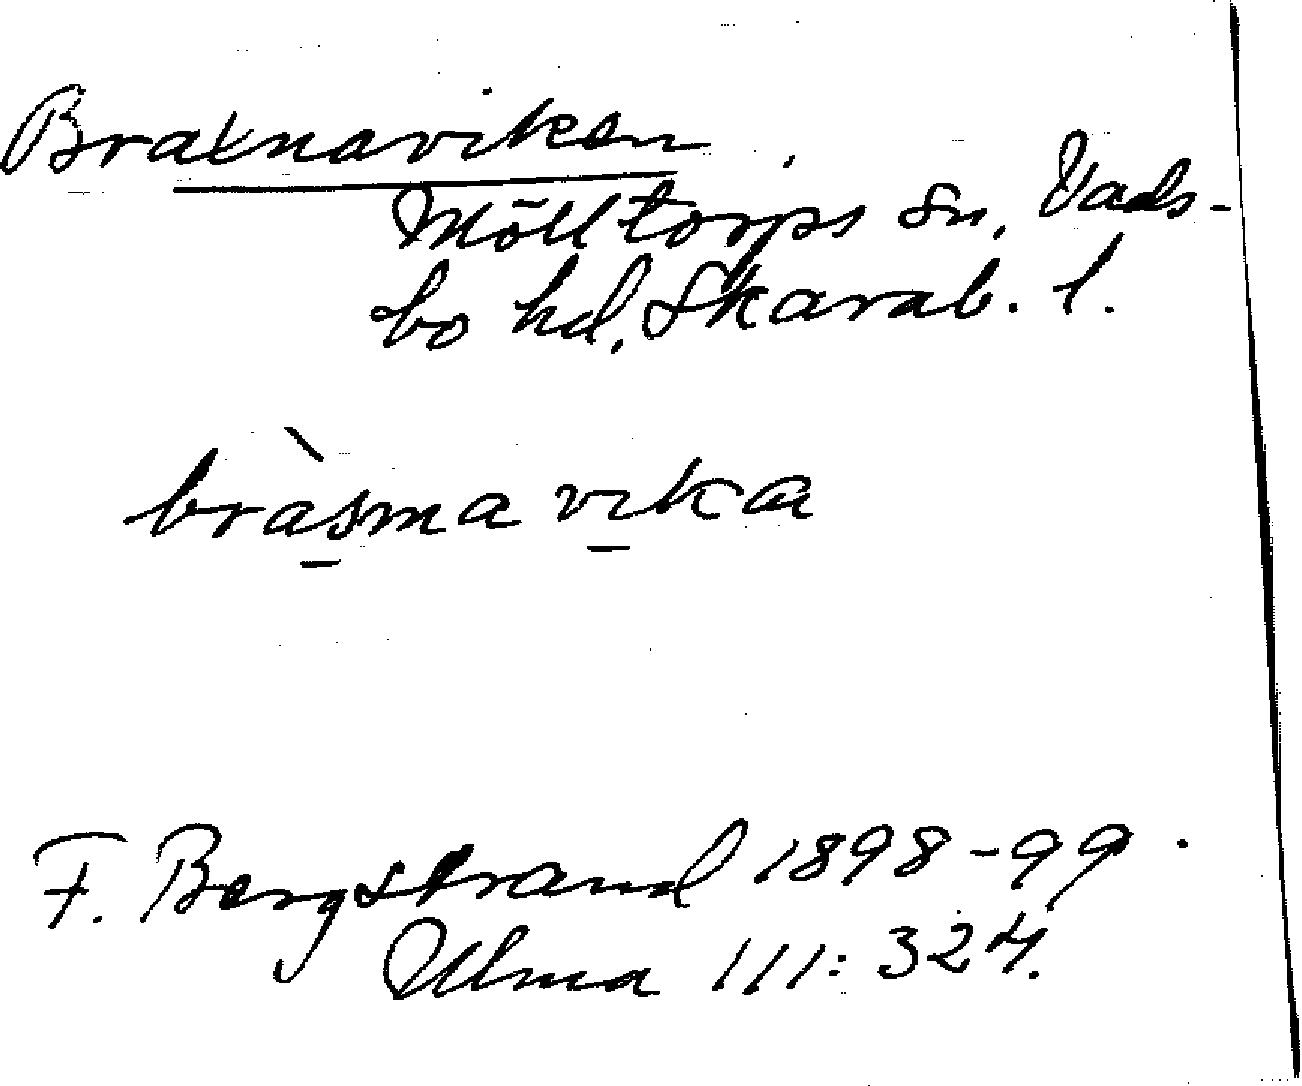 Braxnaviken,
Mölltorps sn, Vads-
bo hd, Skarab. l.
bràsma vika
F. Bergstrand 1898-99.
Ulma 111:324.